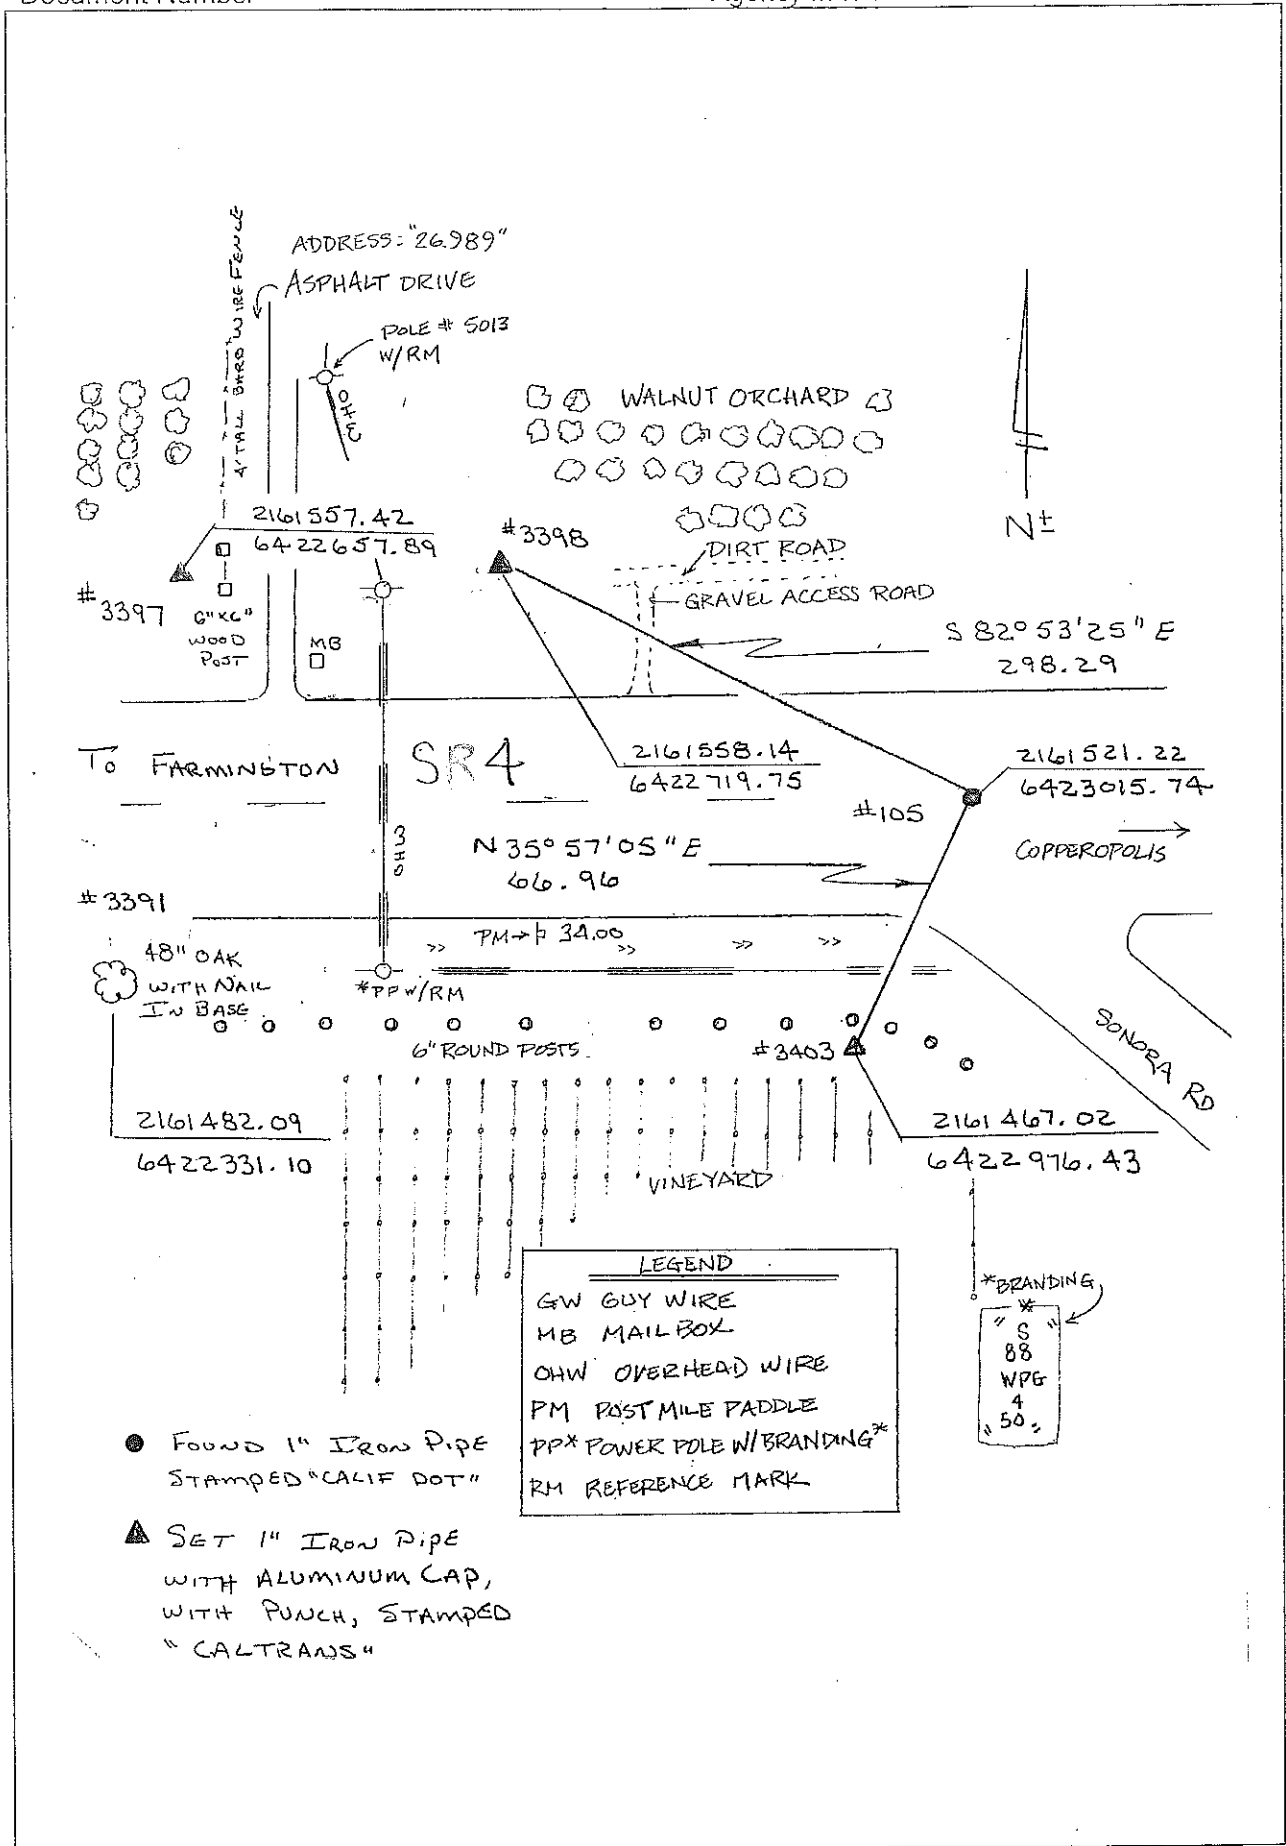 Document Number
ADDRESS: "26.989"
ASPHALT DRIVE
4' TALL BARB WIRE FENCE
POLE # 5013
W/RM
OHW
WALNUT ORCHARD
2161557.42
6422657.89
#3398
DIRT ROAD
N±
#3397
6"x6"
WOOD
POST
MB
GRAVEL ACCESS ROAD
S 82° 53' 25" E
298.29
To FARMINGTON
SR4
2161558.14
6422719.75
2161521.22
6423015.74
#105
OHW
N 35° 57' 05" E
66.96
COPPEROPOLIS
#3391
PM 34.00
48" OAK
WITH NAIL
IN BASE
*PP W/RM
6" ROUND POSTS
#3403
SONORA RD
2161482.09
6422331.10
2161467.02
6422976.43
VINEYARD
LEGEND
GW GUY WIRE
MB MAILBOX
OHW OVERHEAD WIRE
PM POST MILE PADDLE
PP* POWER POLE W/BRANDING*
RM REFERENCE MARK
*BRANDING
" * "
S
88
WPG
4
" 50 "
FOUND 1" IRON PIPE
STAMPED "CALIF DOT"
SET 1" IRON PIPE
WITH ALUMINUM CAP,
WITH PUNCH, STAMPED
"CALTRANS"